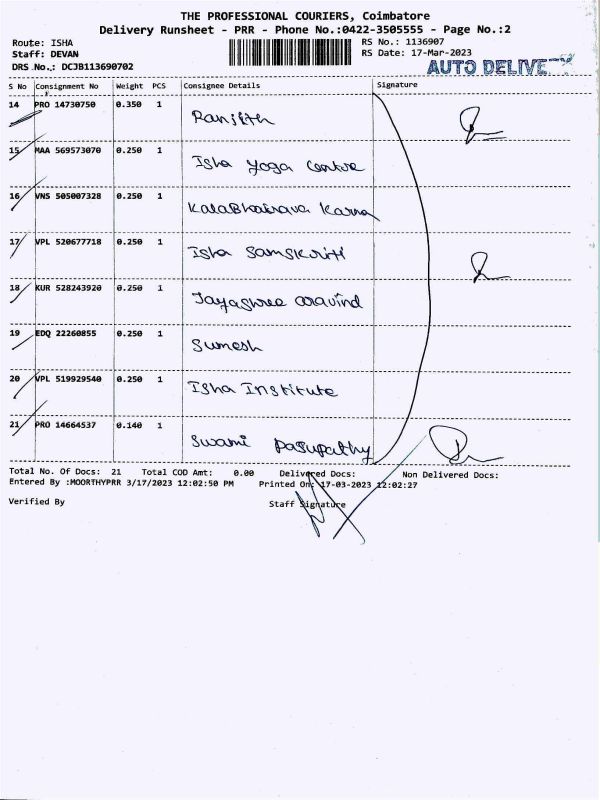 THE PROFESSIONAL COURIERS, Coimbatore
Delivery Runsheet - PRR - Phone No.:0422-3505555 - Page No.:2
Route: ISHA
Staff: DEVAN
DRS No.: DCJB113690702
RS No.: 1136907
RS Date: 17-Mar-2023
AUTO DELIVE
S No Consignment No Weight PCS Consignee Details Signature
14 PRO 14730750 0.350 1
Ranjith
15 MAA 569573070 0.250 1
Isha Yoga Centre
16 VNS 505007328 0.250 1
KalaBhairava Karma
17 VPL 520677718 0.250 1
Isha Samskriti
18 KUR 528243920 0.250 1
Jayashree aravind
19 EDQ 22260855 0.250 1
Sumesh
20 VPL 519929540 0.250 1
Isha Institute
21 PRO 14664537 0.140 1
Swami Pasupathy
Total No. Of Docs: 21 Total COD Amt: 0.00 Delivered Docs: Non Delivered Docs:
Entered By :MOORTHYPRR 3/17/2023 12:02:50 PM Printed On: 17-03-2023 12:02:27
Verified By Staff Signature